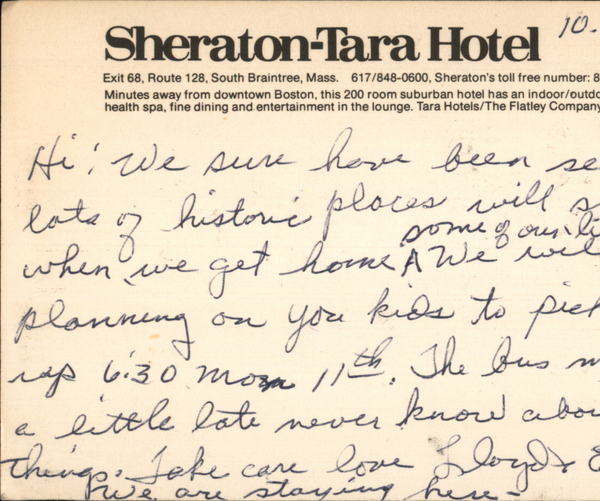 Sheraton-Tara Hotel 10.
Exit 68, Route 128, South Braintree, Mass. 617/848-0600, Sheraton's toll free number: 8
Minutes away from downtown Boston, this 200 room suburban hotel has an indoor/outdo
health spa, fine dining and entertainment in the lounge. Tara Hotels/The Flatley Company
Hi! We sure have been se
lots of historic places will s
some of our
when we get home. We wil
planning on you kids to pick
up 6:30 Mon 11th. The bus m
a little late never know abou
things. Take care love Lloyd & E
We are staying here.